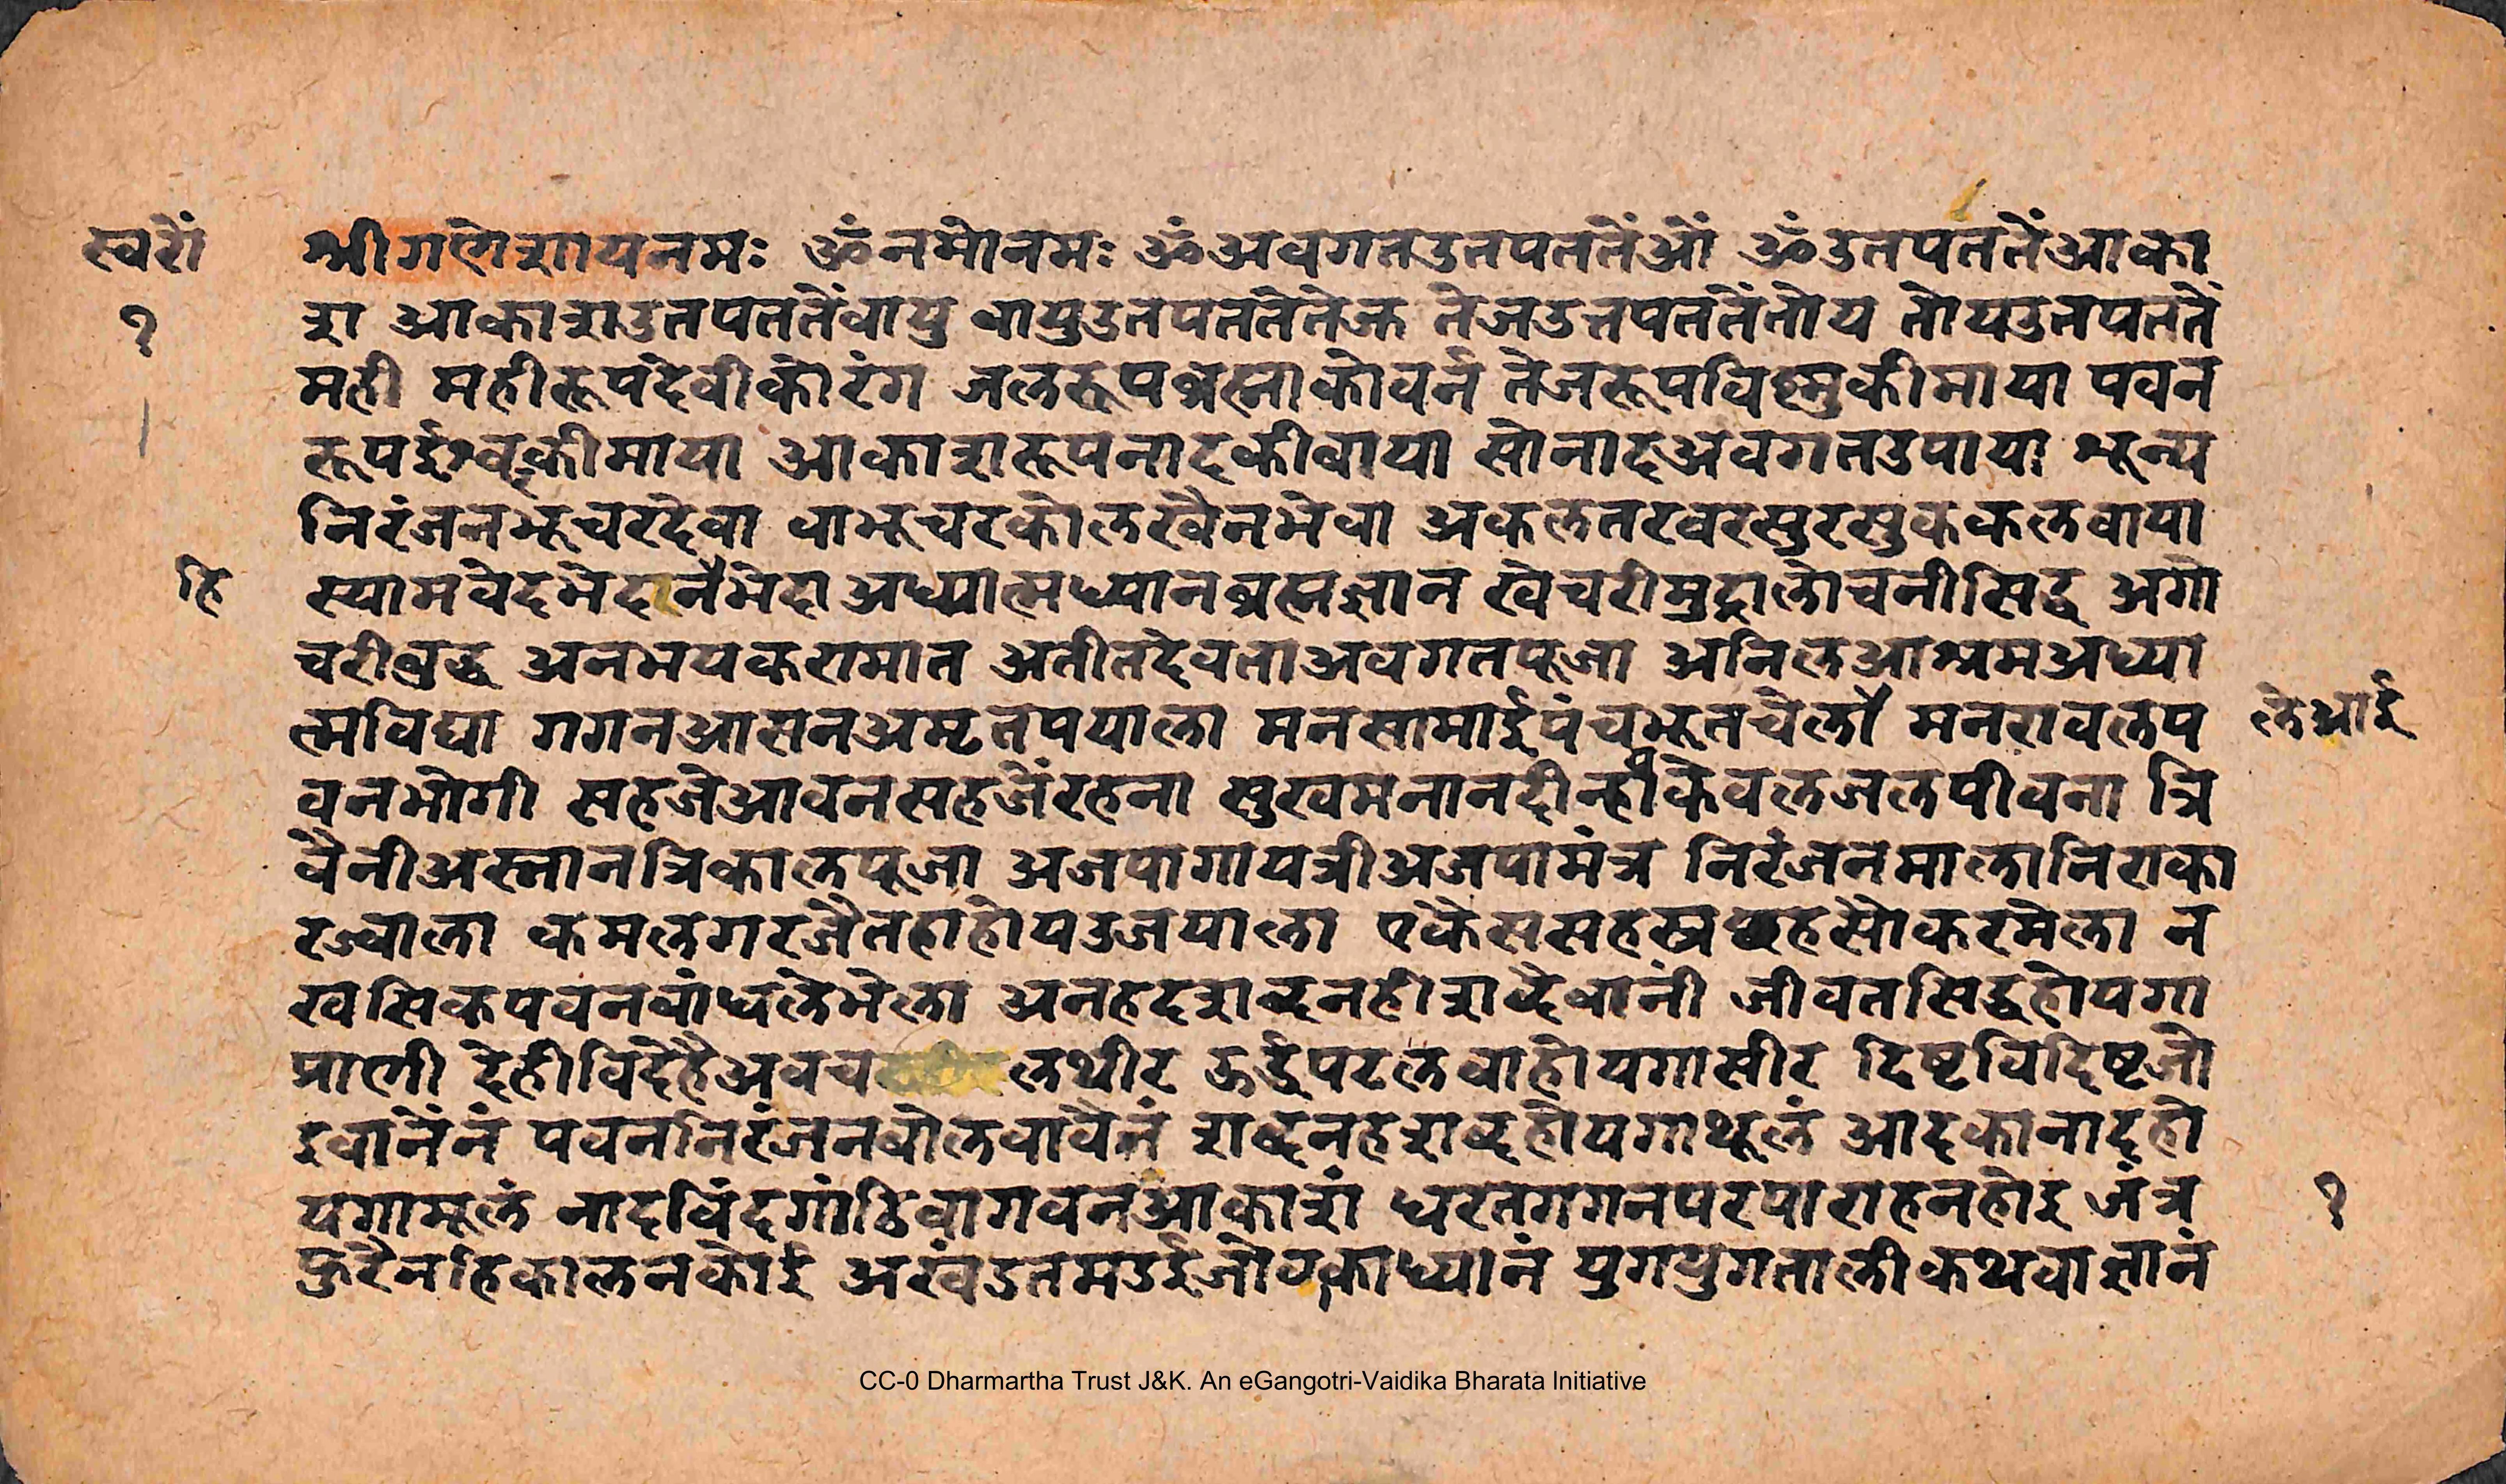 स्वरो
१
श्रीगणेशायनमः ॐनमोनमः ॐअवगतउतपततेंओं ॐउतपततेंआका
श आकाशउतपततेंवायु वायुउतपततेतेज तेजउतपततेंतोय तोयउतपततें
मही महीरूपंदेवीकोरंग जलरूपब्रह्माकोवर्न तेजरूपविष्णुकीमाया पवन
रूपईश्वरकीमाया आकाशरूपनादकीवाया सोनादअवगतउपाया श्रून्य
निरंजनभूचरदेवा वाभूचरकोलखैनभेवा अकलतरवरसुरसुककलवाया
हि
स्यामवेदभेदानैभेदा अध्यात्मध्यानब्रह्मज्ञान खेचरीमुद्रालोचनीसिद्ध अगो
चरीबुद्ध अनभयकरामात अतीतदेवताअवगतपूजा अनिलआश्रमअध्या
त्मविद्या गगनआसनअमृतपयाला मनसामाईपंचभूतचेलौ मनरावलप
लेआई
वनभोगी सहजेआवनसहजेंरहना सुखमनानदीन्हौकेवलजलपीवना त्रि
वैनीअस्नानत्रिकालपूजा अजपागायत्रीअजपामंत्र निरंजनमालानिराका
रज्वाला कमलगरजैतहाहोयउजयाला एकेससहस्रछहसोकरमेला न
खसिकपवनवांधलेभेला अनहदशब्दनहीशब्दैवांनी जीवतसिद्धहोयगा
प्राणी देहीविदेहैअवच लथीर ऊर्द्धपरलवाहोयगासीर दिष्टविदिष्टजो
इवानेंनं पवननिरंजनवोलवावैनं शब्दनहशब्दहोयगाथूलं आदकानादहो
यगामूलं नादविंदगांठिवागवनआकाशं धरतगगनपरपाराहनहोइ जंत्र
१
फुरैनहिकालनकोई अखंडतमडईजोवकाध्यानं युगयुगतालीकथवाज्ञानं
CC-0 Dharmartha Trust J&K. An eGangotri-Vaidika Bharata Initiative